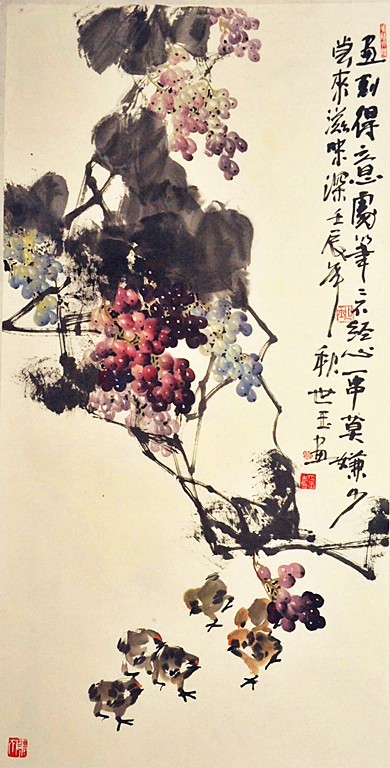 画到得意處笔〻不经心一串莫嫌少
尝來滋味深壬辰年秋世玉画